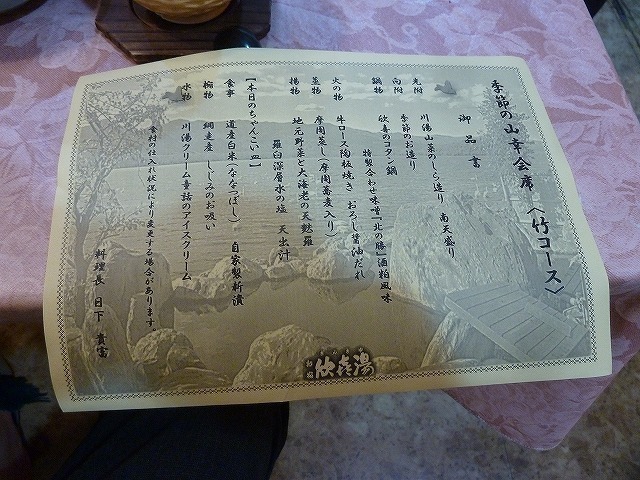 季節の山幸会席 〈竹コース〉
御品書
先附 川湯山菜のしら造り 南天盛り
向附 季節のお造り
鍋物 欣喜のコタン鍋
特製合わせ味噌『北の勝』酒粕風味
火の物 牛ロース陶板焼き おろし醤油だれ
蒸物 摩周蒸し(摩周蕎麦入り)
揚物 地元野菜と大海老の天麩羅
羅臼深層水の塩 天出汁
【本日のちゃんこい皿】
食事 道産白米(ななつぼし) 自家製新漬
椀物 網走産 しじみのお吸い
水物 川湯クリーム童話のアイスクリーム
食材の仕入れ状況により変更する場合があります。
料理長 日下 貴富
欣喜湯